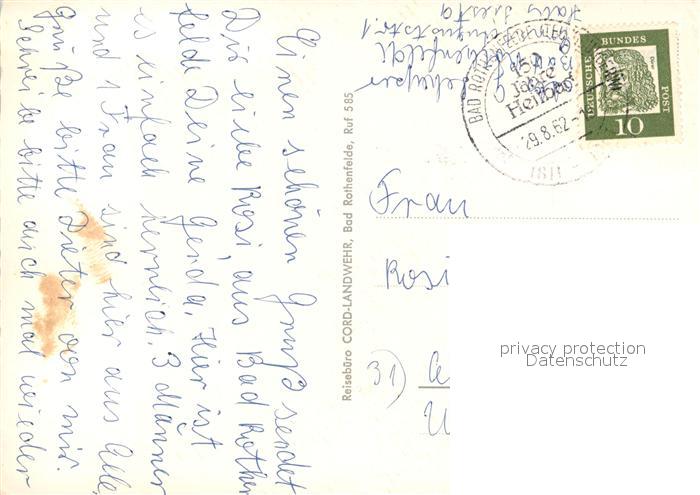 Einen schönen Gruß sendet
Dir liebe Rosi, aus Bad Rothen
felde Deine Gerda. Hier ist
es einfach herrlich. 3 Männer
und 1 Frau sind hier aus Celle,
Grüße bitte Dieter von mir.
Schreibe bitte auch mal wieder
Reisebüro CORD-LANDWEHR, Bad Rothenfelde, Ruf 585
BAD ROTHENFELDE
150
Jahre
Heilbad
29.8.62
1811
DEUTSCHE BUNDES POST
Dürer
10
Frau
Rosi
31)
privacy protection
Datenschutz